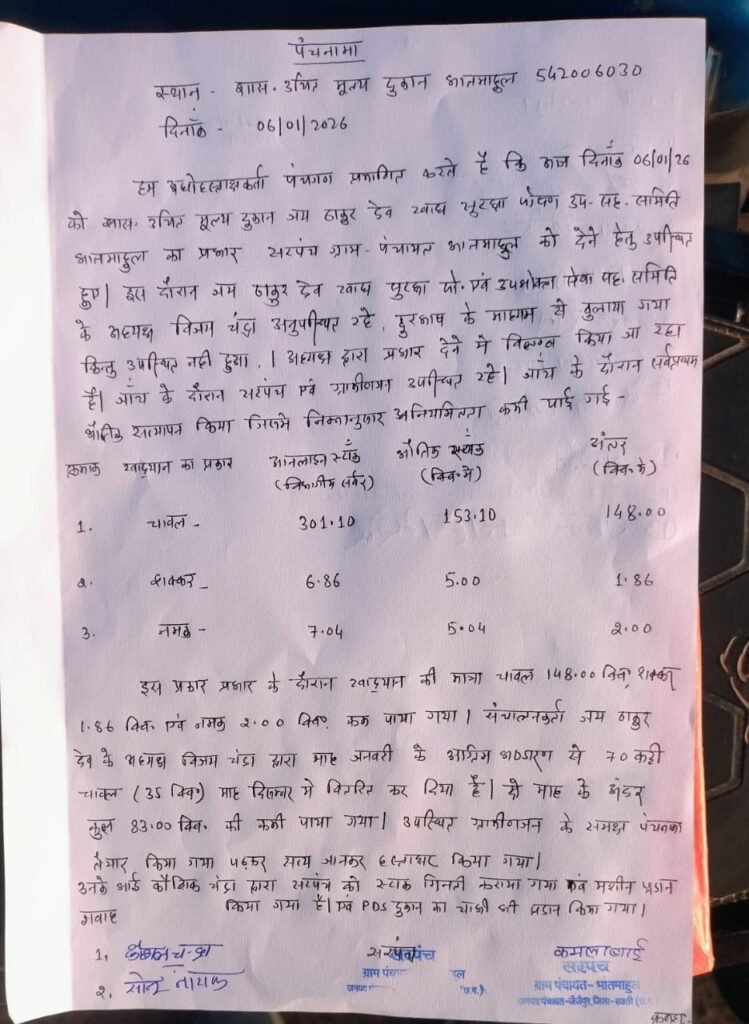 पंचनामा
स्थान - शास. उचित मूल्य दुकान भातमाहुल 542006030
दिनाँक - 06/01/2026
हम अधोहस्ताक्षरकर्ता पंचगण प्रमाणित करते है कि आज दिनाँक 06/01/26
को शास. उचित मूल्य दुकान जय ठाकुर देव खाद्य सुरक्षा पोषण उप. सह. समिति
भातमाहुल का प्रभार सरपंच ग्राम-पंचायत भातमाहुल को देने हेतु उपस्थित
हुए। इस दौरान जय ठाकुर देव खाद्य सुरक्षा पो. एवं उपभोक्ता सेवा सह. समिति
के अध्यक्ष विजय चंद्रा अनुपस्थित रहे, दुरभाष के माध्यम से बुलाया गया
किन्तु उपस्थित नही हुआ,। अध्यक्ष द्वारा प्रभार देने मे विलम्ब किया जा रहा
है। जाँच के दौरान सरपंच एवं ग्रामीणजन उपस्थित रहे। जाँच के दौरान सर्वप्रथम
भौतिक सत्यापन किया जिसमे निम्नानुसार अनियमितता कमी पाई गई -
क्रमांक खाद्यान का प्रकार आनलाइन स्टाँक भौतिक स्टाँक अंतर
(विभागीय सर्वर) (क्वि. मे) (क्वि. मे)
1. चावल - 301.10 153.10 148.00
2. शक्कर - 6.86 5.00 1.86
3. नमक - 7.04 5.04 2.00
इस प्रकार प्रभार के दौरान खाद्यान की मात्रा चावल 148.00 क्वि. शक्कर
1.86 क्वि. एवं नमक 2.00 क्वि. कम पाया गया। संचालनकर्ता जय ठाकुर
देव के अध्यक्ष विजय चंद्रा द्वारा माह जनवरी के अग्रिम भण्डारण से 70 कट्टी
चावल (35 क्वि.) माह दिसम्बर मे वितरित कर दिया है। दो माह के अंदर
कुल 83.00 क्वि. की कमी पाया गया। उपस्थित ग्रामीणजन के समक्ष पंचनामा
तैयार किया गया पढ़कर सत्य जानकर हस्ताक्षर किया गया।
उनके भाई कौशिक चंद्रा द्वारा सरपंच को स्टाक गिनती कराया गया एवं मशीन प्रदान
गवाह किया गया है। एवं PDS दुकान का चाबी भी प्रदान किया गया।
1. सरपंच कमलाबाई
सरपंच
2. सोनू नायक ग्राम पंचा ग्राम पंचायत-भातमाहुल
जनपद (छ.ग.) जनपद पंचायत-जैजैपुर, जिला-सक्ती (छ.ग.)